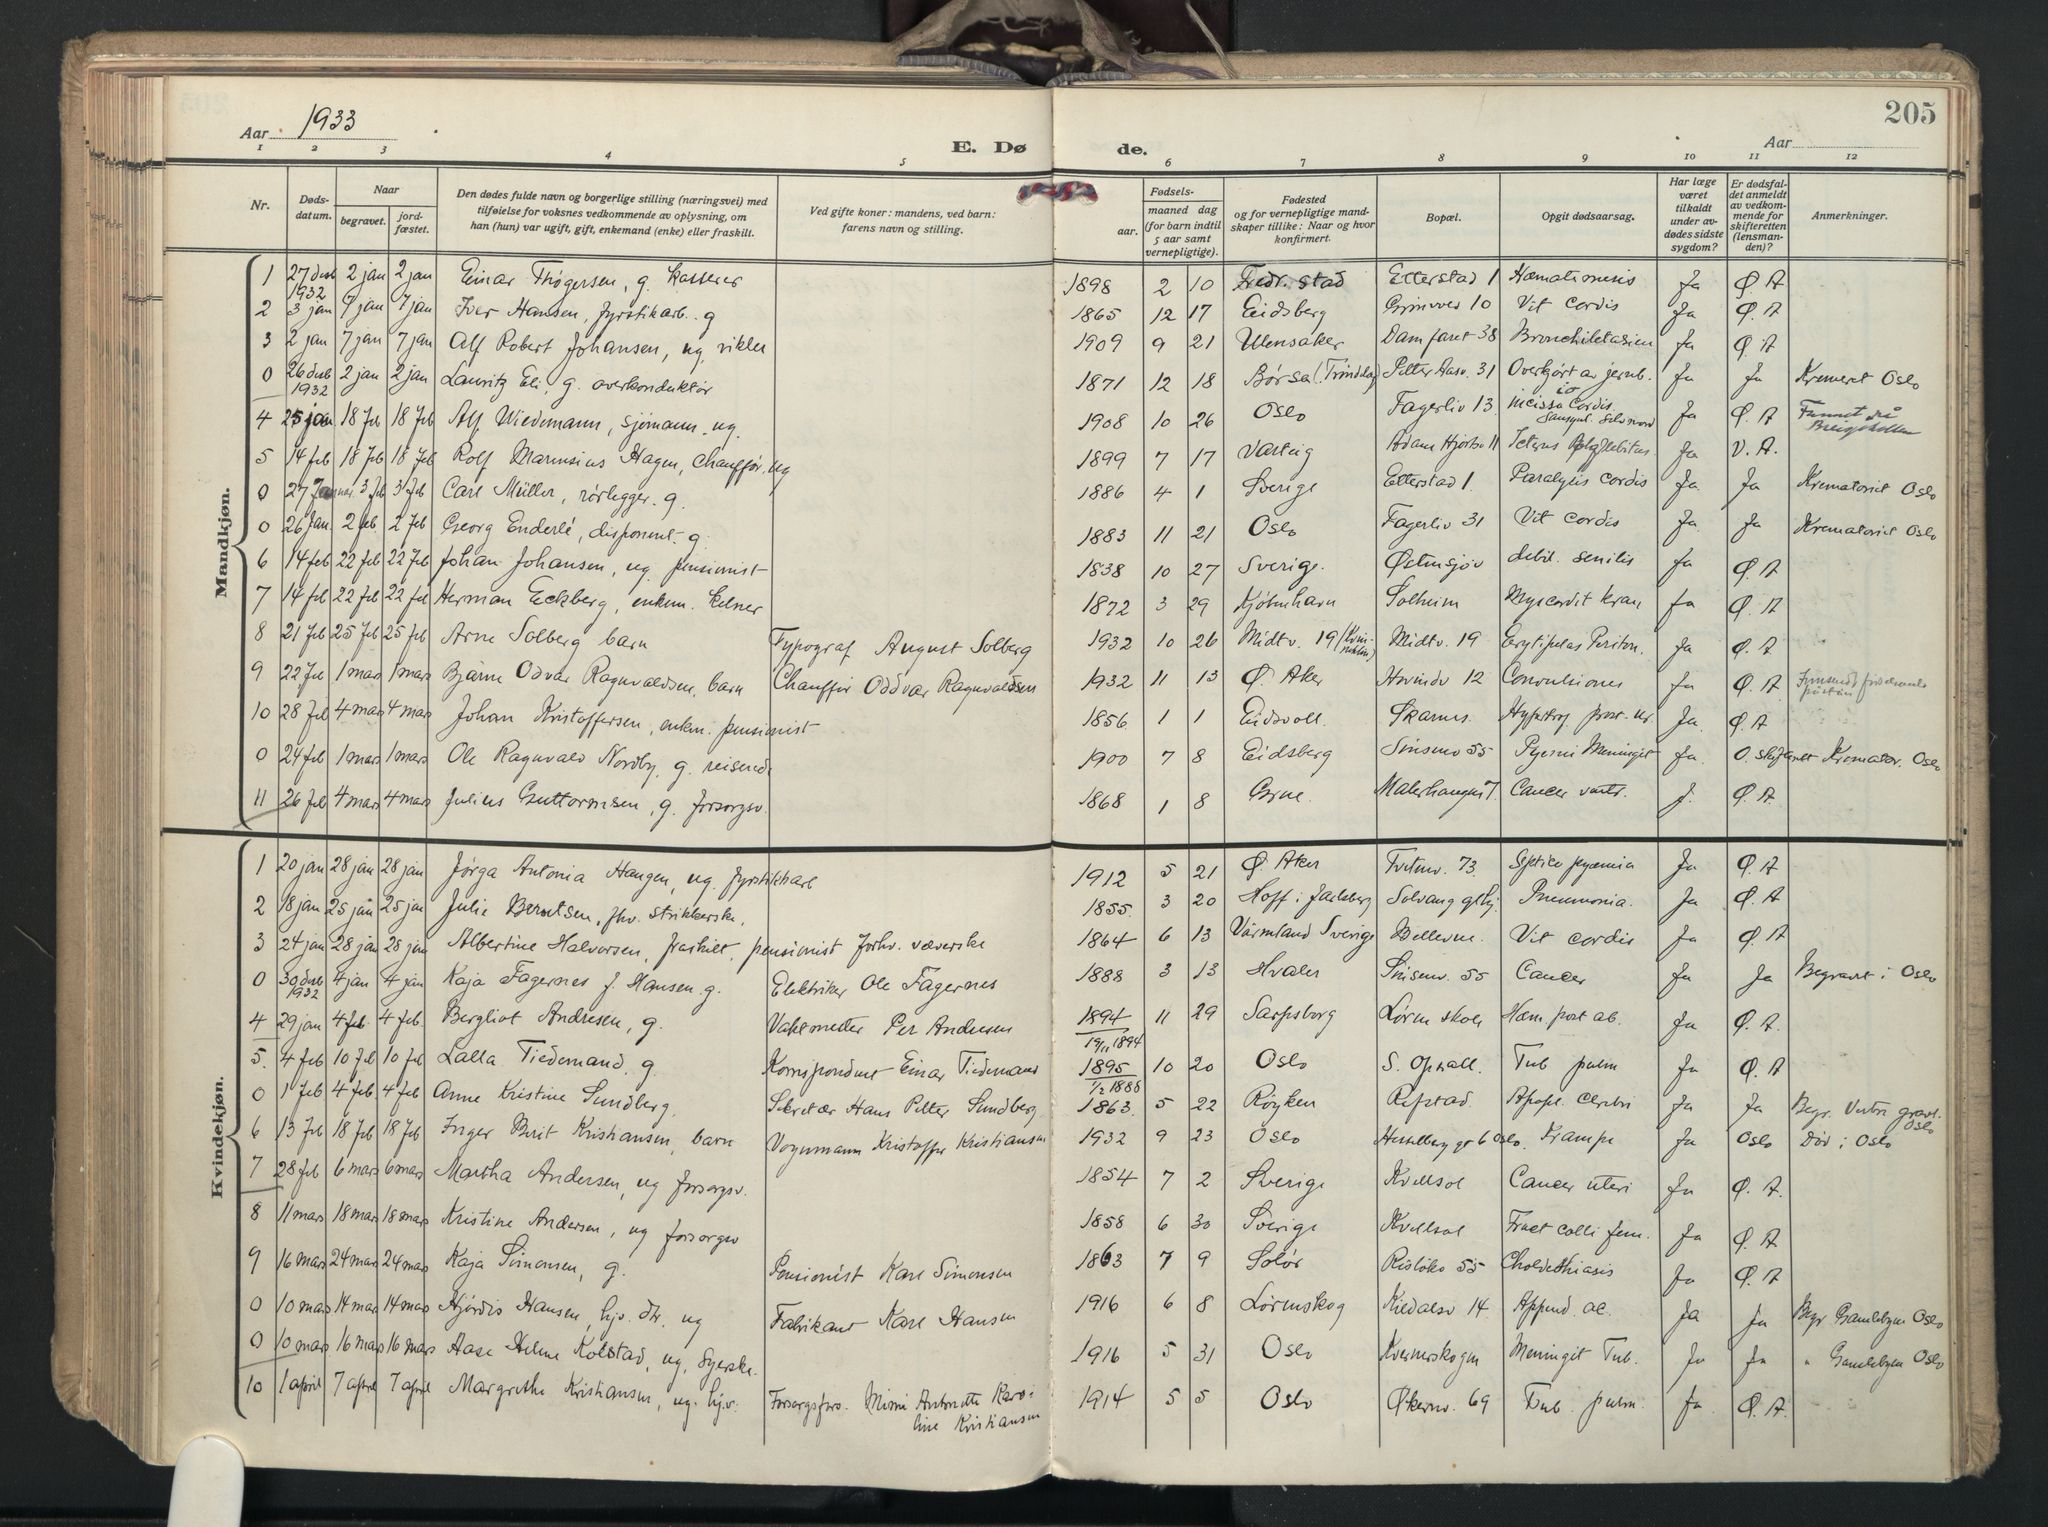 205
Aar 1933 E. Døde. Aar
1 2 3 4 5 6 7 8 9 10 11 12
Nr. Dødsdatum. Naar begravet. jordfæstet. Den dødes fulde navn og borgerlige stilling (næringsvei) med tilføielse for voksnes vedkommende av oplysning, om han (hun) var ugift, gift, enkemand (enke) eller fraskilt. Ved gifte koner: mandens, ved barn: farens navn og stilling. Fødsels- aar. maaned dag (for barn indtil 5 aar samt vernepligtige). Fødested og for vernepligtige mandskaper tillike: Naar og hvor konfirmert. Bopæl. Opgit dødsaarsag. Har læge været tilkaldt under avdødes sidste sygdom? Er dødsfaldet anmeldt av vedkommende for skifteretten (lensmanden)? Anmerkninger.
Mandkjøn.
1 27 desb 1932 2 jan 2 jan Einar Thøgersen, g. kasserer 1898 2 10 Fredr. stad Etterstad 1 Hæmatemesis Ja Ø. A
2 3 jan 7 jan 7 jan Iver Hansen, fyrstikarb. g 1865 12 17 Eidsberg 10 Vit cordis Ja Ø. A
3 2 jan 7 jan 7 jan Alf Robert Johansen, ug. vikler 1909 9 21 Ulensaker Damfaret 38 Ja Ø. A
0 26 desb 1932 2 jan 2 jan Lauritz Eli, g. overkonduktør 1871 12 18 Børsa (Trøndelag) Petter Aasv. 31 Overkjørt av jernb. Ja Ja Kremeret Oslo
4 25 jan 18 feb 18 feb Alf Wiedemann, sjømann, ug. 1908 10 26 Oslo Fagerliv 13 Cordis Ja Ø. A Funnet på
5 14 feb 18 feb 18 feb Rolf Marinsius Hagen, chauffør, ug 1899 7 17 Varteig Adam Hjorts v 11 Icterus Ja V. A.
0 27 Januar 3 feb 3 feb Carl Müller, rørlegger. g. 1886 4 1 Sverige Etterstad 1. Paralysis cordis Ja Ja Krematoriet Oslo
0 26 Jan. 2 feb. 2 feb Georg Enderlé, disponent g. 1883 11 21 Oslo Fagerliv 31 Vit cordis Ja Ja Krematoriet Oslo
6 14 feb 22 feb 22 feb Johan Johansen, ug. pensionist 1838 10 27 Sverige. Østensjøv debil. senilis Ja Ø. A
7 14 feb 22 feb 22 feb Herman Eckberg, enkem. kelner 1872 3 29 Kjøbenhavn Solheim Myocardit kron Ja Ø. A
8 21 feb 25 feb 25 feb Arne Solberg barn Typograf August Solberg 1932 10 26 Midtv. 19 Midtv. 19 Erysipelas Periton. Ja Ø. A
9 22 feb 1 mars 1 mars Bjarne Odvar Ragnvaldsen, barn Chauffør Oddvar Ragnvaldsen 1932 11 13 Ø. Aker Hovindv 12 Convulsiones Ja Ø. A
10 28 feb 4 mars 4 mars Johan Kristoffersen, enkm. pensionist 1856 1 1 Eidsvoll. Skarnes. Hypertrof prost. Ja. Ø. A
0 24 feb 1 mars 1 mars Ole Ragnvald Nordby, g. reisende 1900 7 8 Eidsberg Sinsenv 55 Pyemi Meningit Ja. O. skifteret Kremator. Oslo
11 26 feb 4 mars 4 mars Julius Guttormsen, g. forsorgsv. 1868 1 8 Grue. Malerhaugen 7. Cancer ventr. J. Ø. A
Kvindekjøn.
1 20 jan 28 jan 28 jan Jørga Antonia Haugen, ug. fyrstikkarb 1912 5 21 Ø. Aker Tvetenv. 73. Septico pyæmia Ja Ø. A
2 18 jan 25 jan 25 jan Julie Berntsen, fhv. strikkerske, 1855. 3 20 Hoff i Jarlsberg Solvang glhj. Pneumonia. Ja Ø. A
3 24 jan 28 jan 28 jan Albertine Halvorsen, fraskilt, pensionist forhv. væverske 1864 6 13 Värmland Sverige Bellevue. Vit cordis Ja Ø. A
0 30 desb 1932 4 jan 4 jan Kaja Fagernes f. Hansen g. Elektriker Ole Fagernes 1888 3 13 Hvaler Sinsenv. 55 Cancer Ja Ja Begravt i Oslo
4 29 jan 4 feb. 4 feb. Bergliot Andresen, g. Vaktmester Per Andresen 1894 19/11 1894 11 29 Sarpsborg Løren skole Hæm post ab. Ja Ø. A.
5. 4 feb 10 feb 10 feb Lalla Tiedemand, g. Korrespondent Einar Tiedemand 1895 1/2 1888 10 20 Oslo S. Opsall. Tub pulm Ja Ø. A
0 1 feb 4 feb 4 feb Anne Kristine Sundberg. Sekretær Hans Petter Sundberg 1863. 5 22 Røyken Refstad. Apopl. cerebri Ja Ja Begr. Vestre gravl. Oslo
6 13 feb 18 feb 18 feb Inger Berit Kristiansen, barn Vognmann Kristoffer Kristiansen 1932 9 23 Oslo Hesselberg gt 6 Oslo. Krampe Ja Oslo Død i Oslo
7 28 feb 6 mars 6 mars Martha Andersen, ug forsorgsv. 1854 7 2 Sverige Kvellsol Cancer uteri Ja Ø. A.
8 11 mars 18 mars 18 mars Kristine Andersen, ug forsorgsv 1858 6 30 Sverige Kvellsol Fract colli fem. Ja Ø. A
9 16 mars 24 mars 24 mars Kaja Simonsen, g. Pensionist Karl Simonsen 1863 7 9 Solør Risløkv 55 Cholelithiasis Ja Ø. A
0 10 mars 14 mars 14 mars Hjørdis Hansen, hjv. dtr. ug Fabrikant Karl Hansen 1916 6 8 Lørenskog Kildalsv 14 Append. ac. Ja Ja Begr Gamlebyen Oslo
0 10 mars 16 mars 16 mars Aase Helene Kolstad, ug. syerske. 1916 5 31 Oslo Kvernerskogen Meningit Tub. Ja Ja " Gamlebyen Oslo
10 1 april 7 april 7 april Margrethe Kristiansen, ug. hjv. Forsorgsforst. Mimi Antonette Karoline Kristiansen 1914 5 5 Oslo Økernv. 69 Tub. pulm. Ja Ø. A.